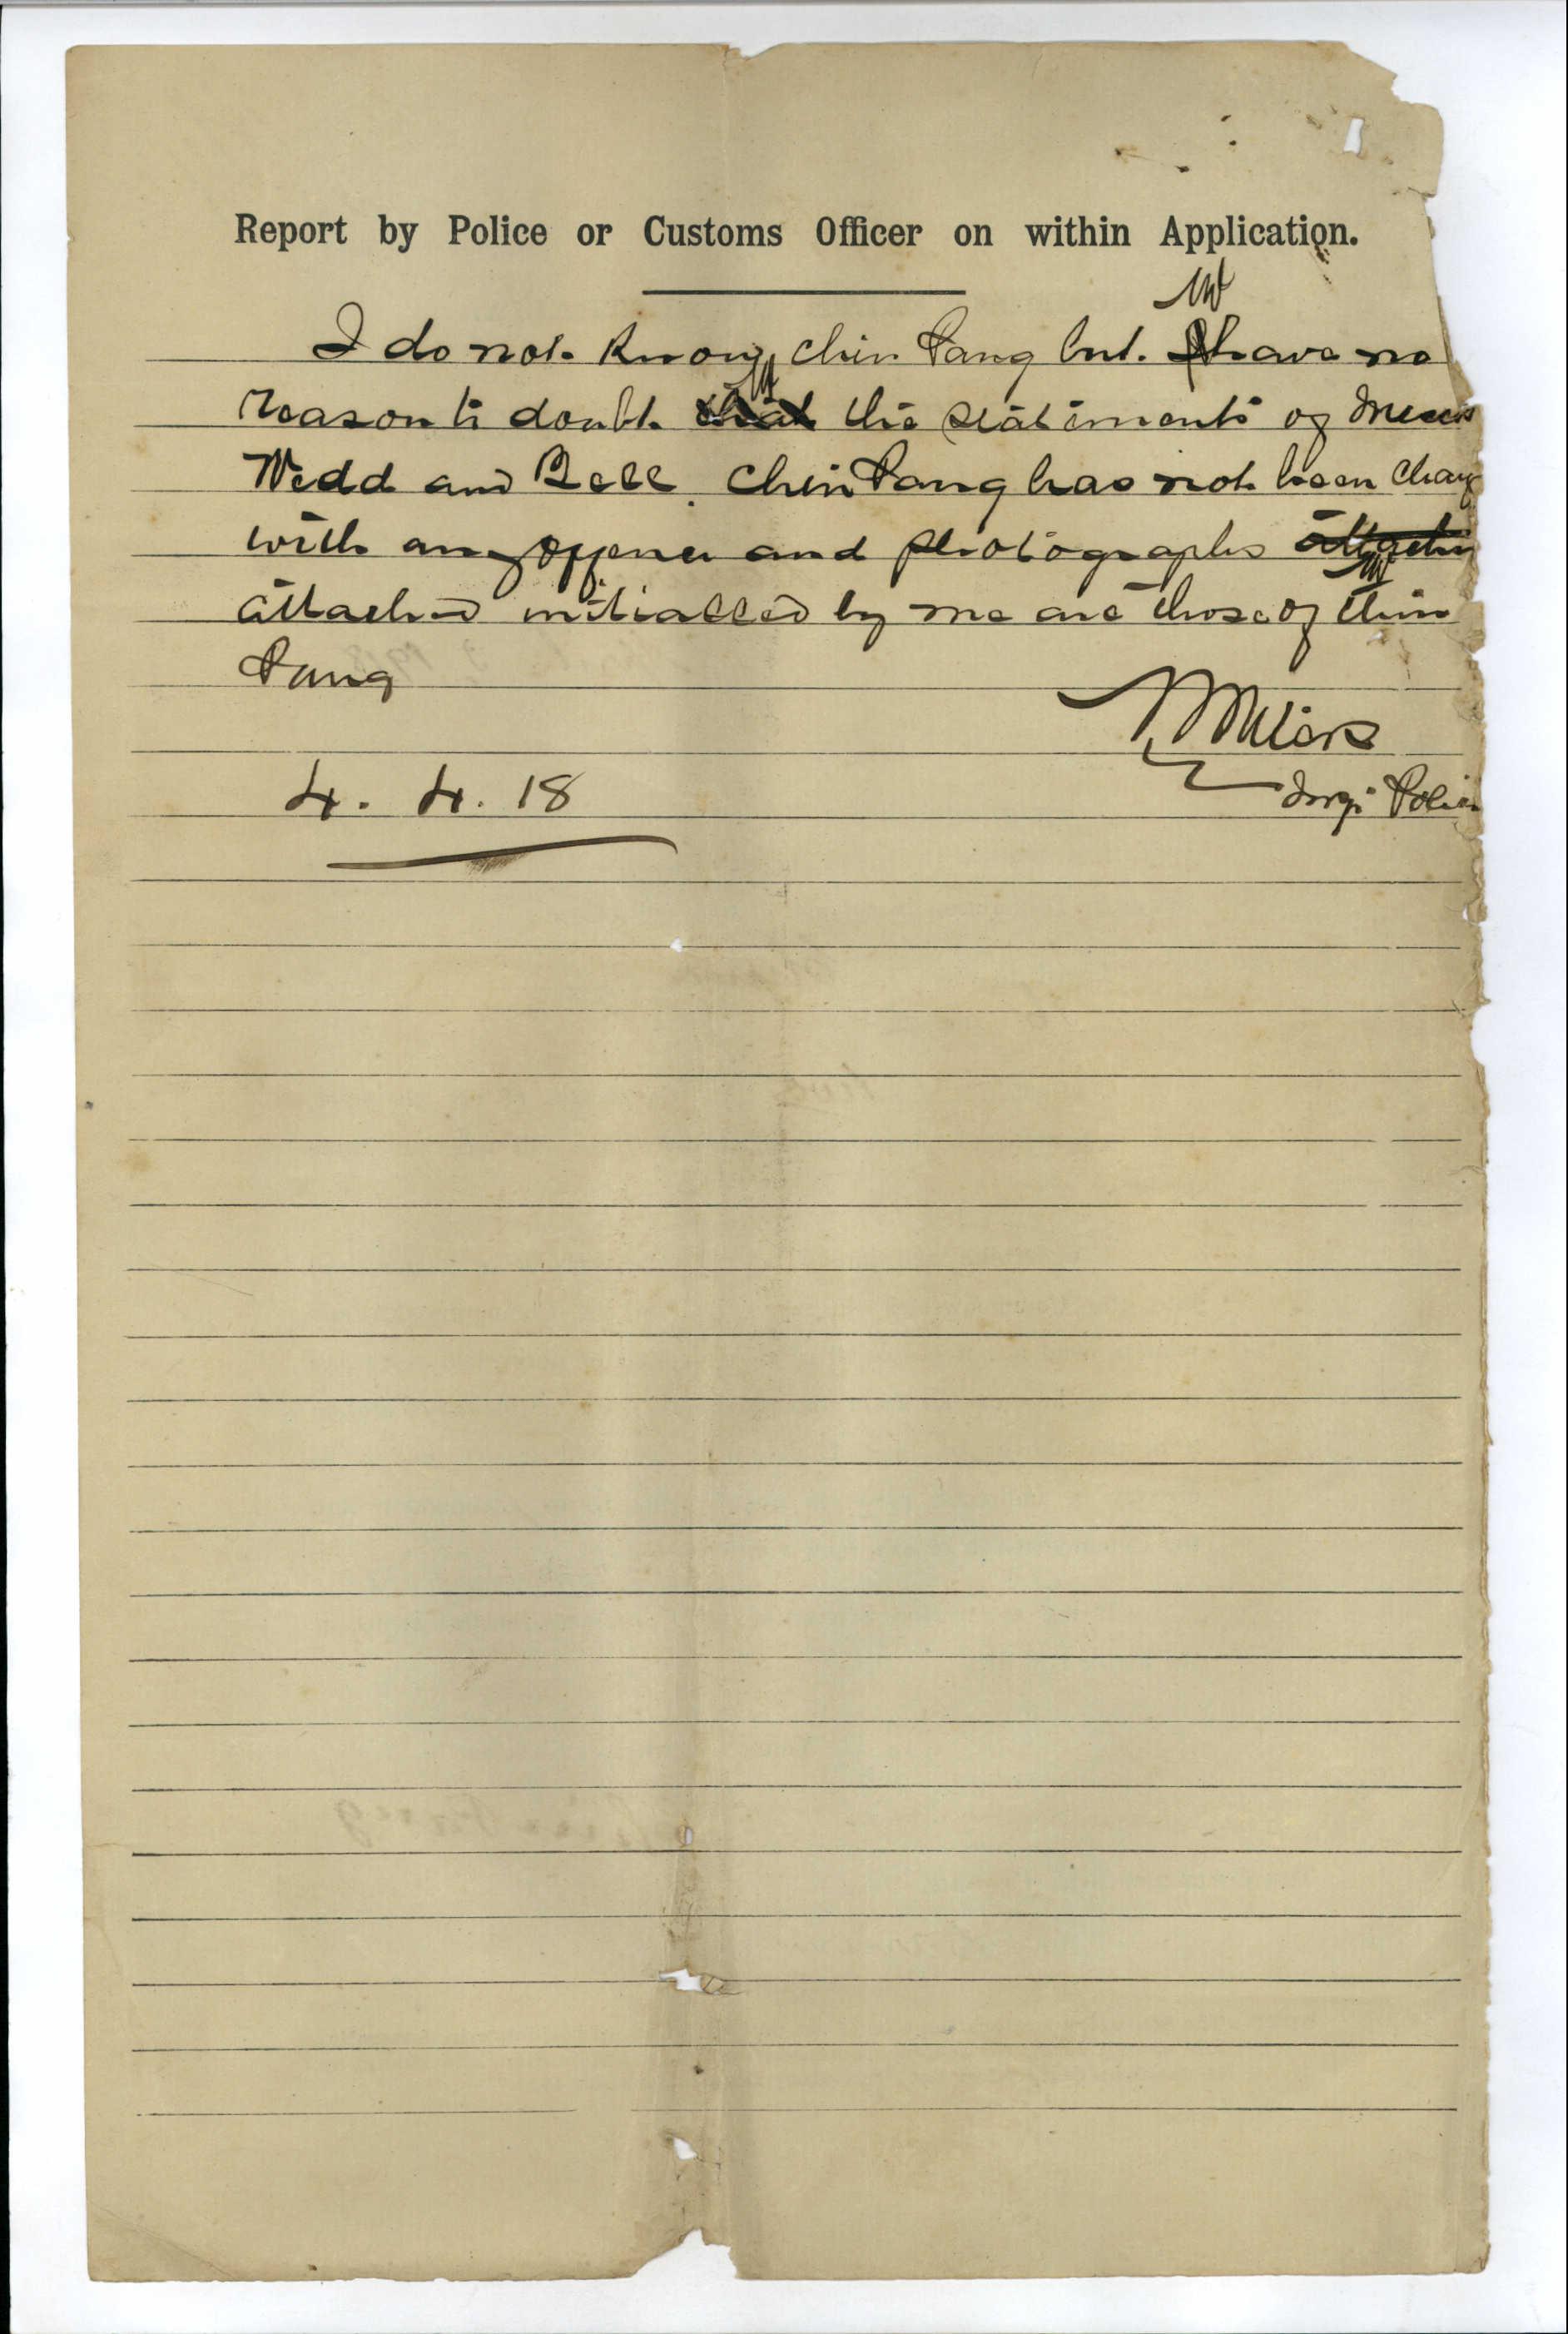 Report by Police or Customs Officer on within Application.
I do not know Chin Pang but I have no
reason to doubt that the statements of Messrs
Wedd and Bell. Chin Pang has not been Charg
with any offence and photographs
attached initialled by me are those of Chin
Pang
4. 4. 18
Insp. Police